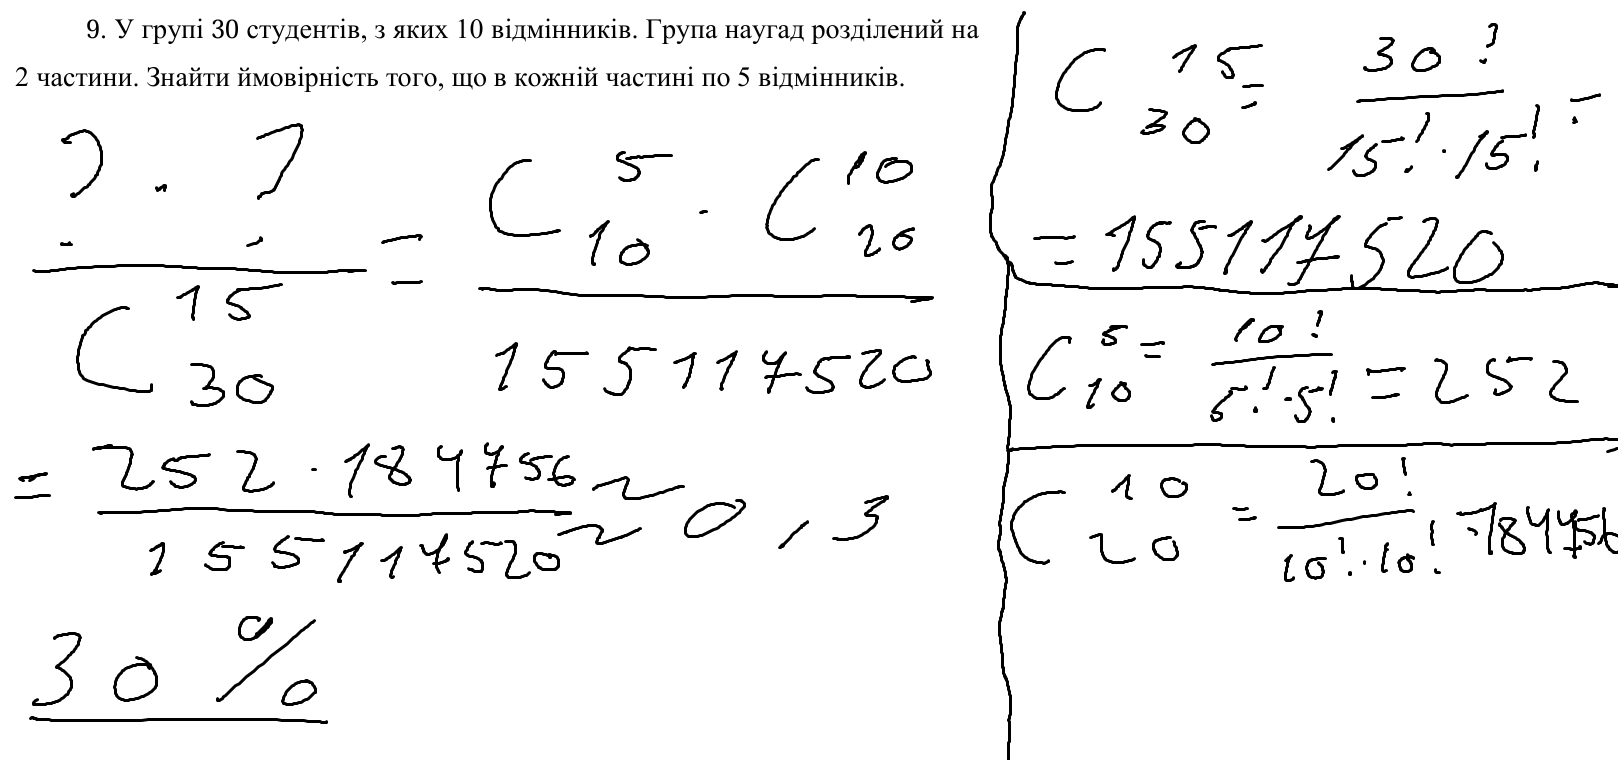 9. У групі 30 студентів, з яких 10 відмінників. Група наугад розділений на
2 частини. Знайти ймовірність того, що в кожній частині по 5 відмінників.
? · ?
C 15 30
= C 5 10 · C 10 20
155117520
= 252 · 184756
155117520
≈ 0,3
30 %
C 15 30 = 30!
15! · 15! =
= 155117520
C 5 10 = 10!
5! · 5! = 252
C 10 20 = 20!
10! · 10! = 184756